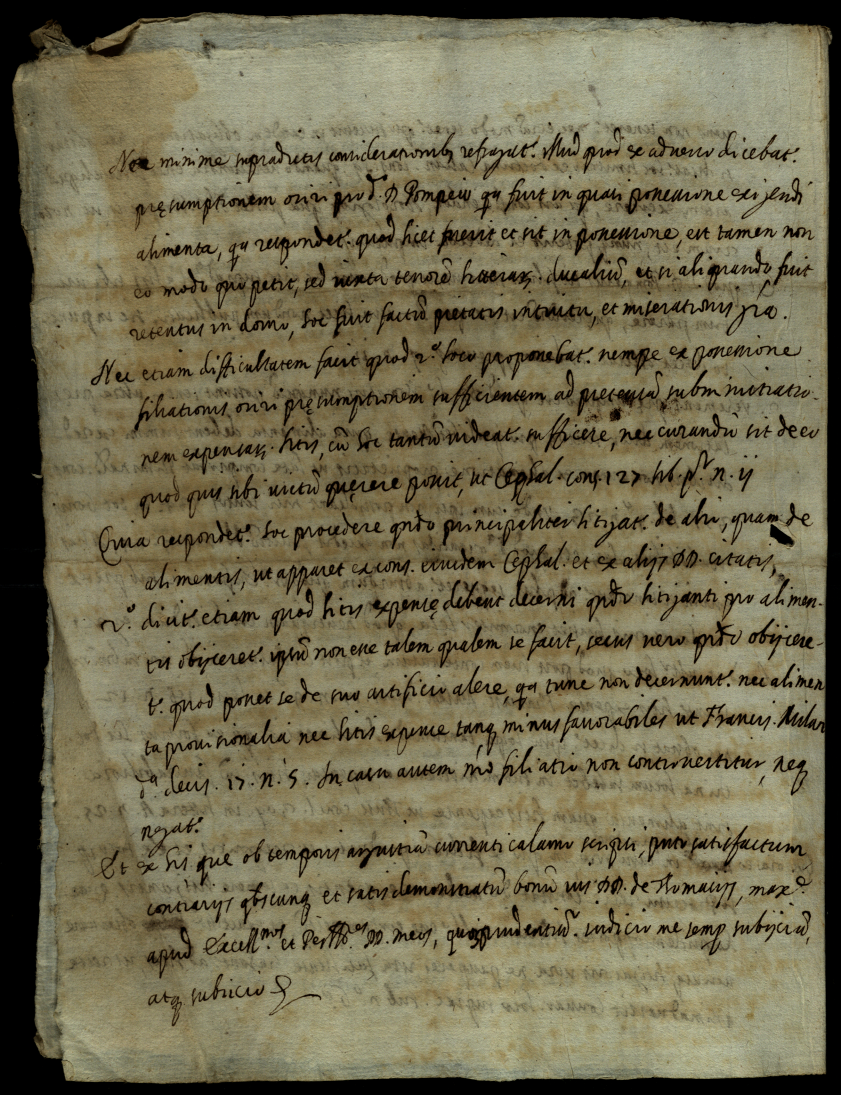 Nec minime supradictis considerationib, refragat. illud quod ex adverso dicebat.
pręsumptionem oriri pro d. D Pompeio qa fuit in quasi possessione exigendi
alimenta, qa respondet. quod licet fuerit et sit in possessione, est tamen non
eo modo quo petit, sed iuxta tenorē litterar. ducaliū, et si aliquando fuit
retentus in domo, hoc fuit factū pietatis intuitu, et miserationis gra.
Nec etiam difficultatem facit quod 2.o loco proponebat. nempe ex possessione
filiationis oriri pręsumptionem sufficientem ad subministratio-
nem expensar. litis, cū hoc tantū videat. sufficere, nec curandū sit de eo
quod quis sibi victū quęrere possit, ut Cephal. cons. 127 lib. p.o n. ij
Quia respondet. hoc procedere qndo principaliter litigat. de alio, quam de
alimentis, ut apparet ex cons. eiusdem Cephal. et ex alijs DD. citatis,
2.o dicit. etiam quod litis expensę debent decerni qndo litiganti pro alimen-
tis obijceret. ipsū non esse talem qualem se facit, secus vero qndo obijcere-
t. quod posset se de suo artificio alere, qa tunc non decernunt. nec alimen
ta provisionalia nec litis expense tanq minus favorabiles ut Francis. Milan
decis. 17. n. 5. In casu autem nro filiatio non controvertitur, neq
negat.
Et ex his que ob temporis angustiā currenti calamo scripsi, puto satisfactum
contrarijs qbscunq et satis demonstratū bonū ius DD. de Thomasijs, max.e
apud Excell.mos et DD. meos, quor prudentiss. iudicio me semp subijciā,
atq subijcio